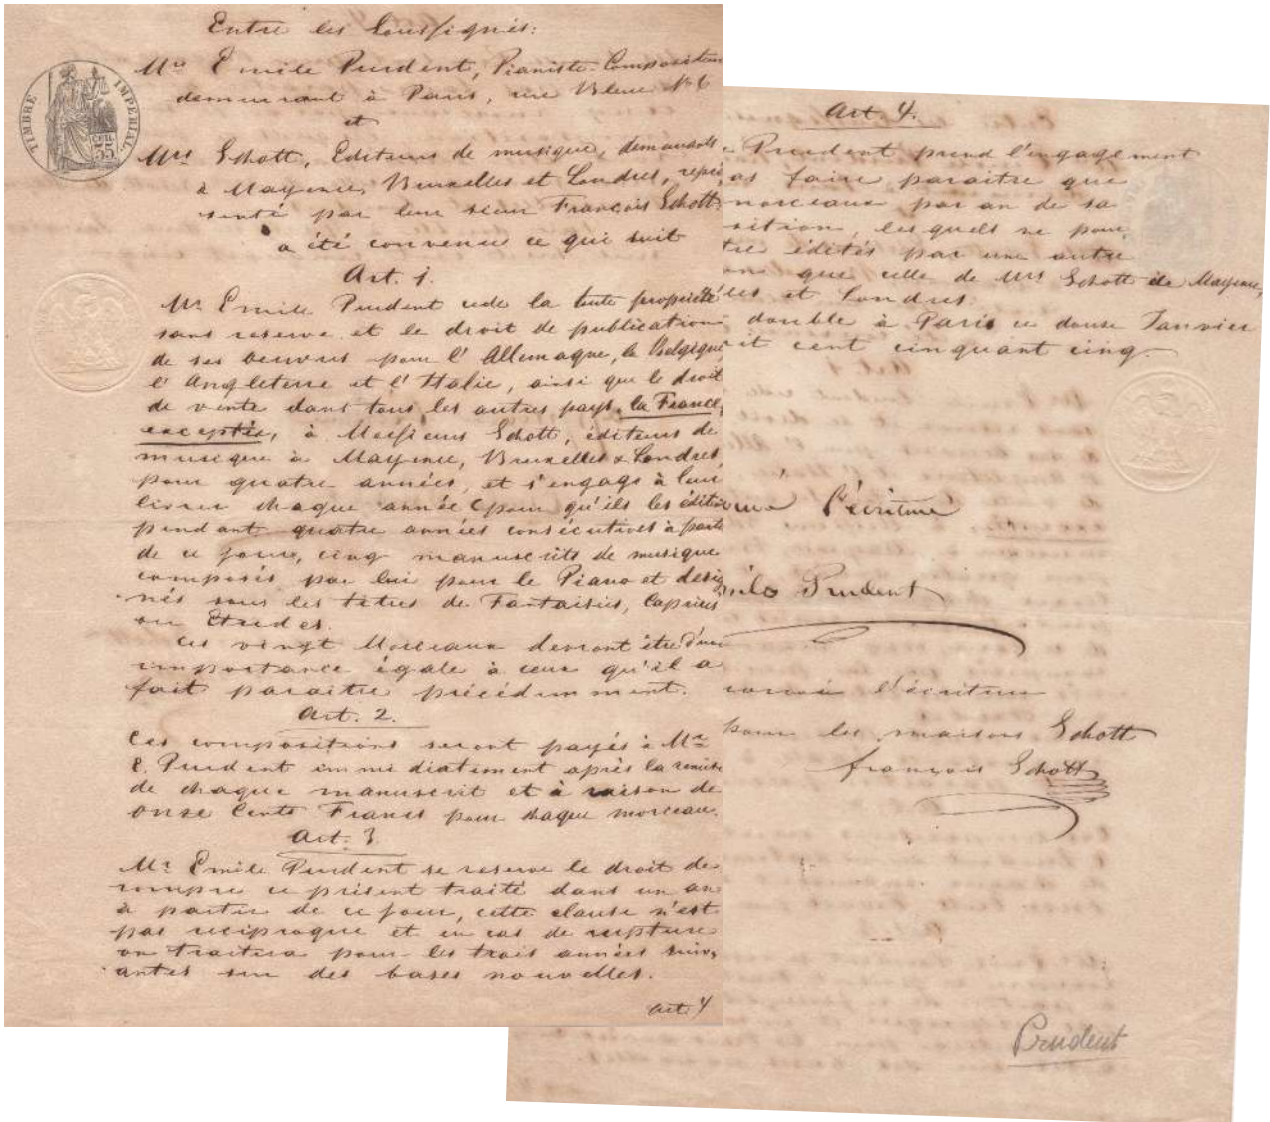 Entre les Soussignés:
Mrs Emile Prudent, Pianiste-Compositeur
demeurant à Paris, rue Bleue No 6
et
Mrs Schott, Editeurs de musique, demeurants
à Mayence, Bruxelles et Londres, repré
senté par leur sieur François Schott.
a été convenu ce qui suit
Art. 1.
Mr Emile Prudent cede la toute propriété
sans reserve et le droit de publication
de ses oeuvres pour l'Allemagne, la Belgique
l'Angleterre et l'Italie, ainsi que le droit
de vente dans tous les autres pays, la France,
exceptée, à Messieurs Schott, éditeurs de
musique à Mayence, Bruxelles & Londres
pour quatre années, et s'engage à leur
livrer chaque année (pour qu'ils les édite
pendant quatre années consécutives à parti
de ce jour, cinq manuscrits de musique
composés par lui pour le Piano et desig
nés sous les titres de Fantaisies, Caprices
ou Etudes.
Ces vingt Morceaux devront être d'une
importance égale à ceux qu'il a
fait paraitre précédemment.
Art. 2.
Ces compositions seront payés à Mr
E. Prudent immédiatement après la remise
de chaque manuscrit et à raison de
onze Cents Francs pour chaque morceau.
Art. 3.
Mr Emile Prudent se reserve le droit de
rompre ce présent traité dans un an
à partir de ce jour, cette clause n'est
pas reciproque et en cas de rupture
on traitera pour les trois années suiv,
antes sur des bases nouvelles.
Art. 4
TIMBRE IMPERIAL
35
Art. 4.
Prudent prend l'engagement
as faire paraitre que
morceaux par an de sa
sition, lesquels ne pour,
tre édités par une autre
on que celle de Mrs Schott de Mayence,
les et Londres.
double à Paris ce douze Janvier
it cent cinquant cinq.
l'écriture
Prudent
l'écriture
pour les maisons Schott
françois Schott
Prudent